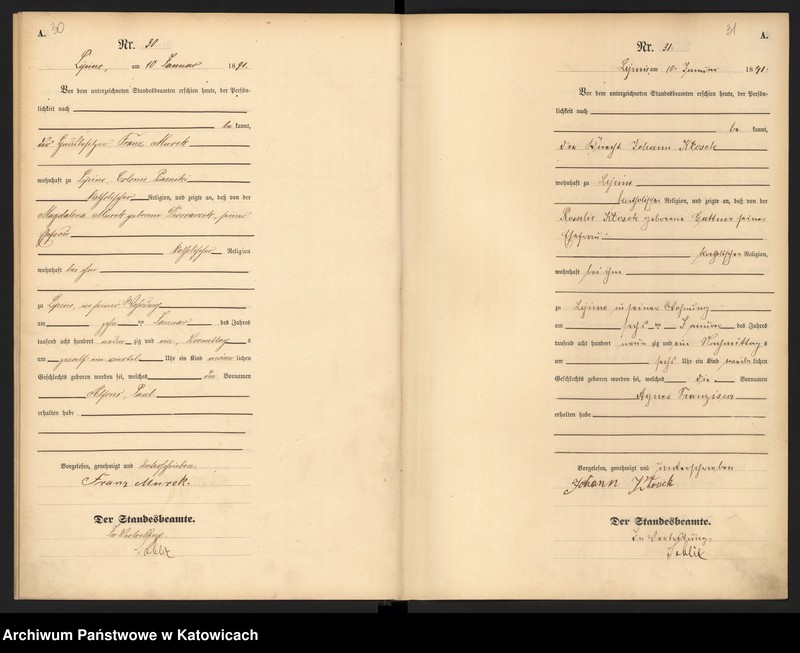 A. 30
Nr. 30
Lipine, am 10 Januar 1891.
Vor dem unterzeichneten Standesbeamten erschien heute, der Persön-
lichkeit nach
be kannt,
der Franz Murek
wohnhaft zu Lipine, Colonie
katholischer Religion, und zeigte an, daß von der
Magdalena Murek geborene seiner
Ehefrau
katholischer Religion
wohnhaft bei ihm
zu Lipine, in seiner Wohnung
am zehn ten Januar des Jahres
tausend acht hundert neun zig und ein, Vormittag s
um zwoelf ein viertel Uhr ein Kind männ lichen
Geschlechts geboren worden sei, welches die Vornamen
Alfons, Paul
erhalten habe
Vorgelesen, genehmigt und unterschrieben.
Franz Murek.
Der Standesbeamte.
In Vertretung.
31 A.
Nr. 31.
Lipine, am 10. Januar 1891.
Vor dem unterzeichneten Standesbeamten erschien heute, der Persön-
lichkeit nach
be kannt,
der Knecht Johann Klosek
wohnhaft zu Lipine
katholischer Religion, und zeigte an, daß von der
Rosalie Klosek geborene Guttner seiner
Ehefrau
katholischer Religion,
wohnhaft bei ihm
zu Lipine in seiner Wohnung
am sechs ten Januar des Jahres
tausend acht hundert neun zig und ein Nachmittag s
um sechs Uhr ein Kind weib lichen
Geschlechts geboren worden sei, welches die Vornamen
Agnes Franzisca
erhalten habe
Vorgelesen, genehmigt und unterschrieben
Johann Klosek
Der Standesbeamte.
In Vertretung.
Archiwum Państwowe w Katowicach